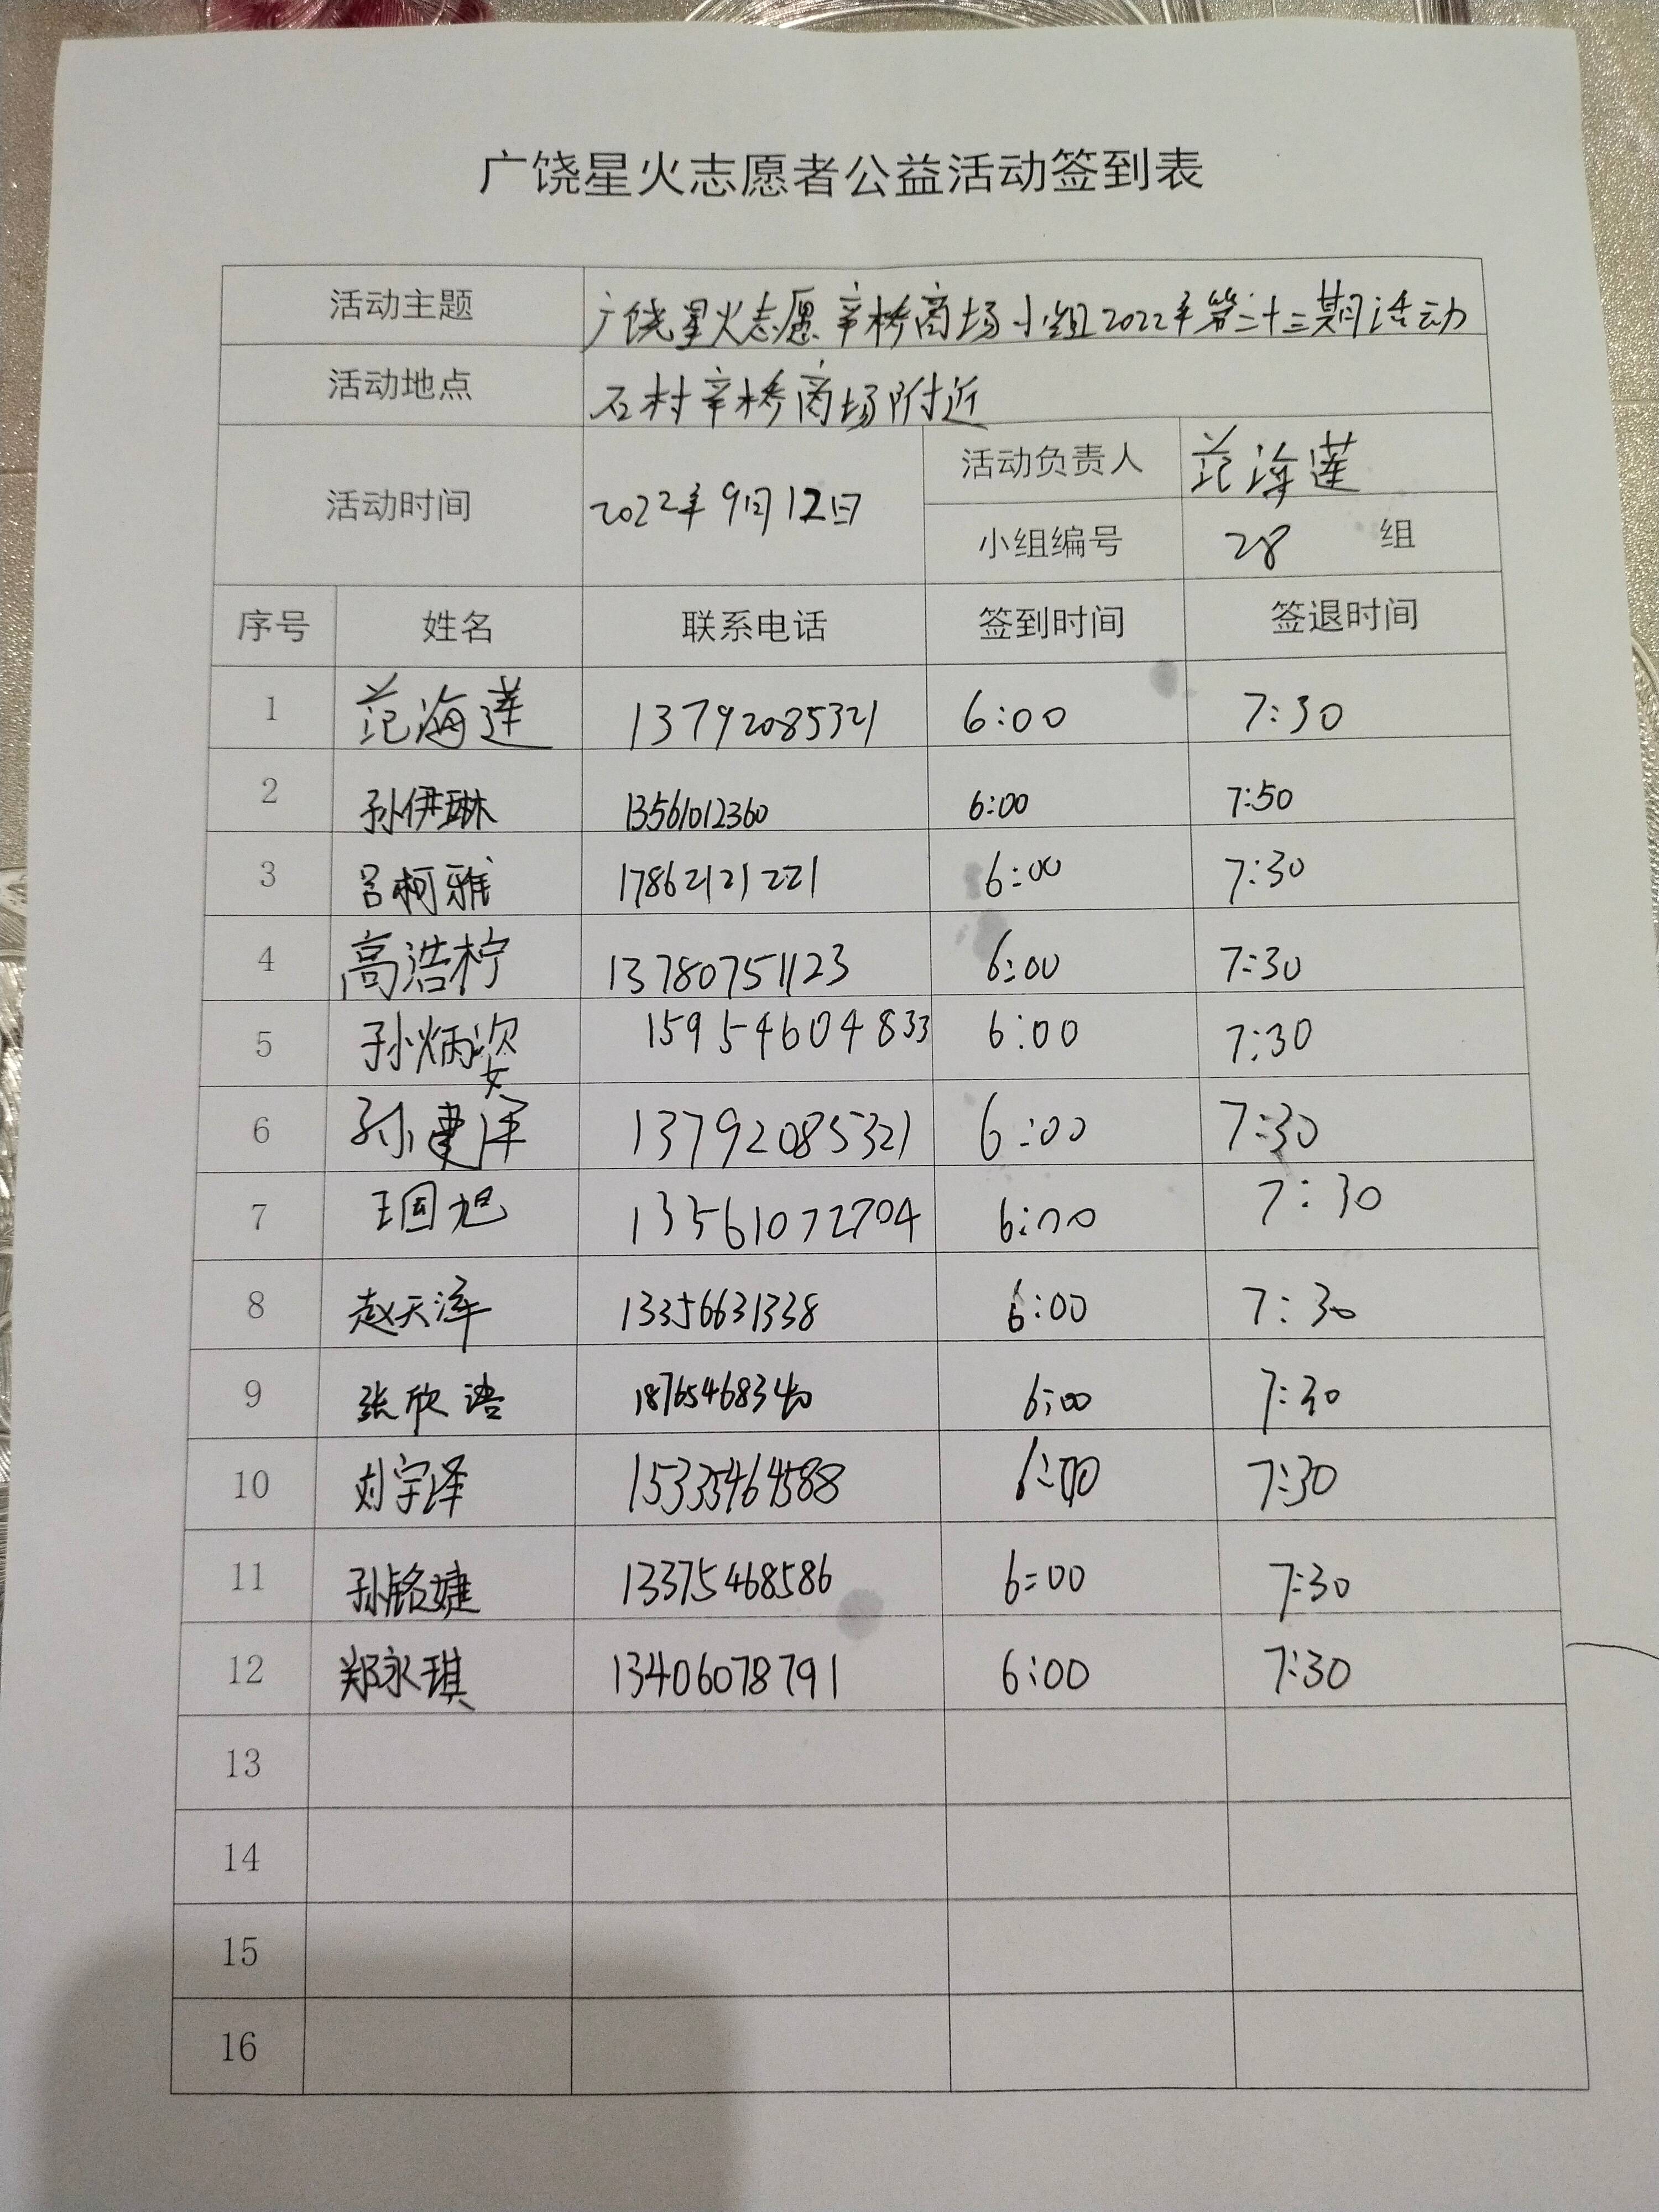 广饶星火志愿者公益活动签到表
活动主题 广饶星火志愿辛桥商场小组2022年第三十三期活动
活动地点 石村辛桥商场附近
活动时间 2022年9月12日 活动负责人 范海莲
小组编号 28 组
序号 姓名 联系电话 签到时间 签退时间
1 范海莲 13792085321 6:00 7:30
2 孙伊琳 13561012360 6:00 7:50
3 吕柯雅 17862121221 6:00 7:30
4 高浩柠 13780751123 6:00 7:30
5 孙炳姿 15954604833 6:00 7:30
6 孙建洋 13792085321 6:00 7:30
7 王国旭 13561072704 6:00 7:30
8 赵天泽 13356631338 6:00 7:30
9 张欣语 18765468340 6:00 7:30
10 刘宇泽 15335464588 6:00 7:30
11 孙铭婕 13375468586 6:00 7:30
12 郑永琪 13406078791 6:00 7:30
13
14
15
16